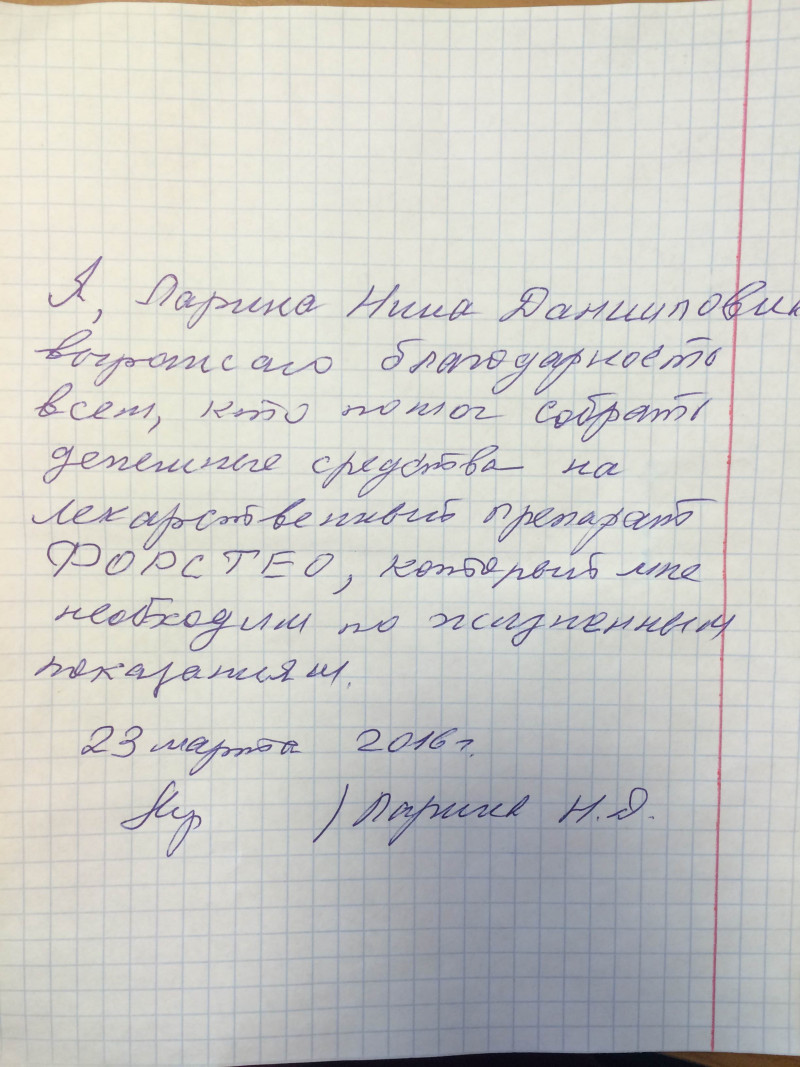 Я, Ларина Нина Даниловн
выражаю благодарность
всем, кто помог собрать
денежные средства на
лекарственный препарат
ФОРСТЕО, который мне
необходим по жизненным
показаниям.
23 марта 2016 г.
/ Ларина Н.Д.